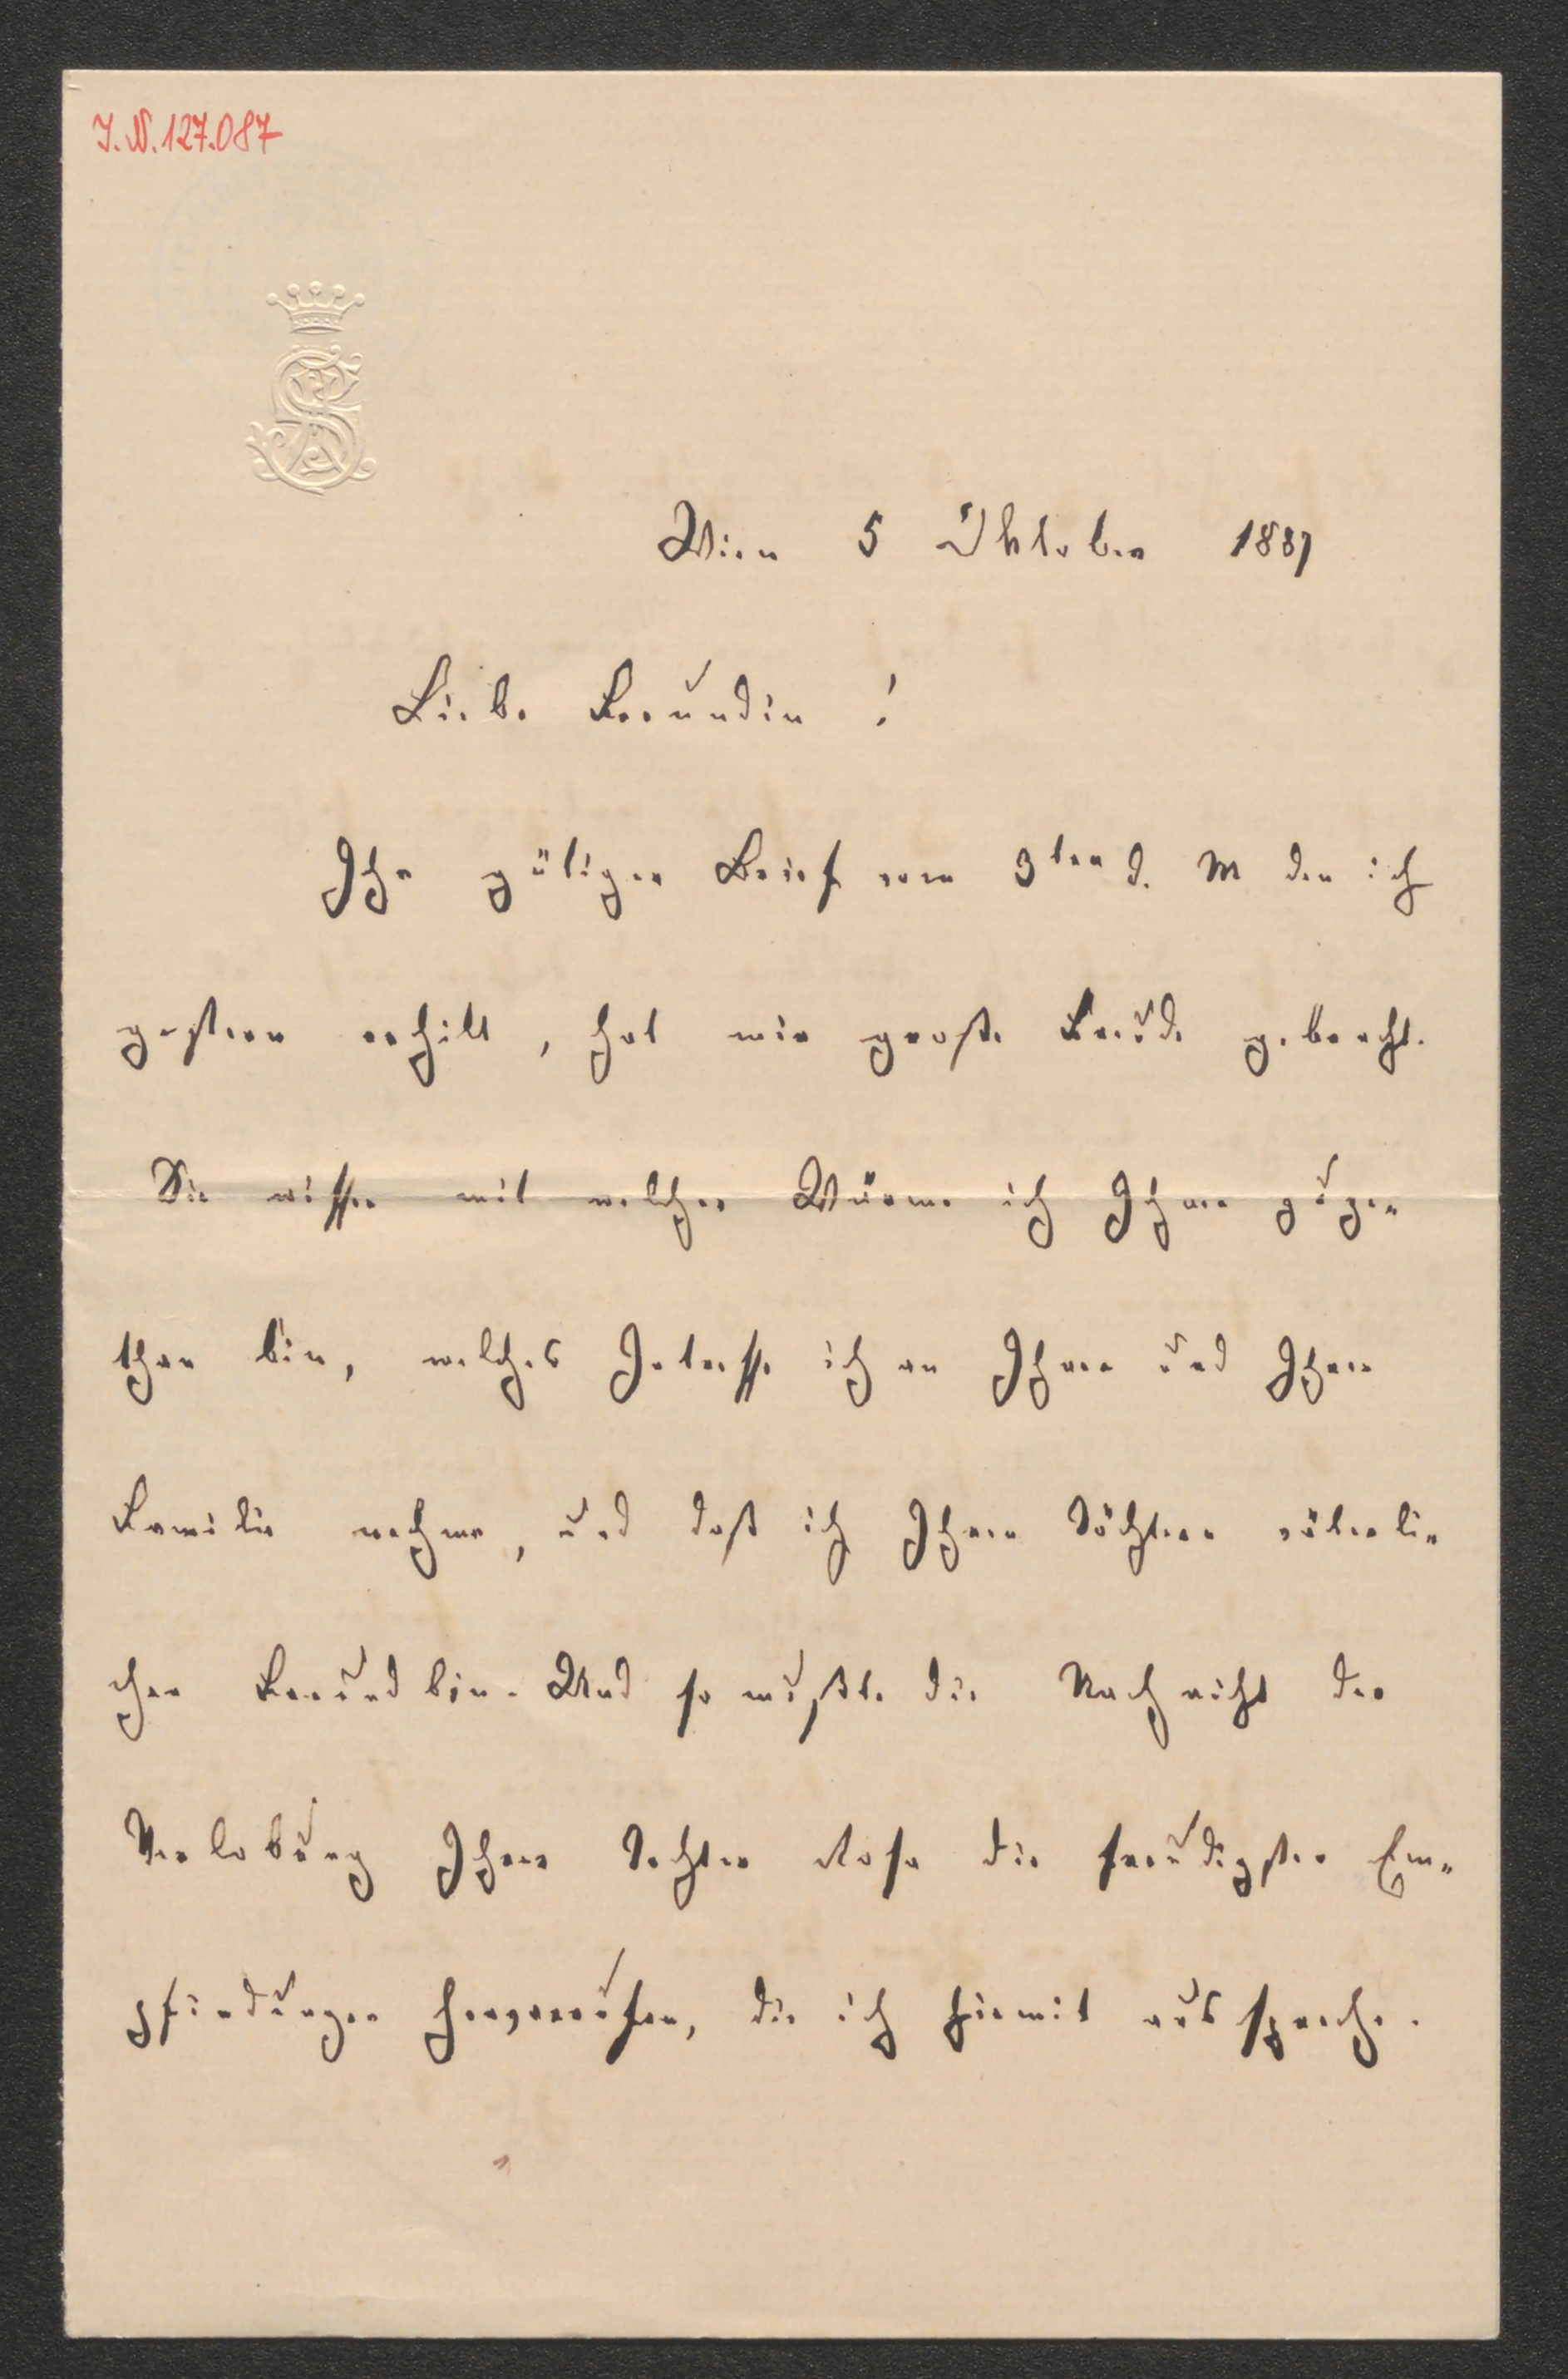 I.N. 127.087
Wien 5 Oktober 1887
Liebe Freundin !
Ihr gütiger Brief vom 3ten d. M den ich
gestern erhilt, hat mir große Freude gebracht.
Sie wissen mit welcher Wärme ich Ihnen zuge„
than bin, welches Intresse ich an Ihnen und Ihrer
Familie nehme, und daß ich Ihren Töchtern väterli„
cher Freund bin. Und so mußte die Nachricht der
Verlobung Ihrer Tochter Rosa die freudigsten Em„
pfindungen hervorrufen, die ich hiemit ausspreche.